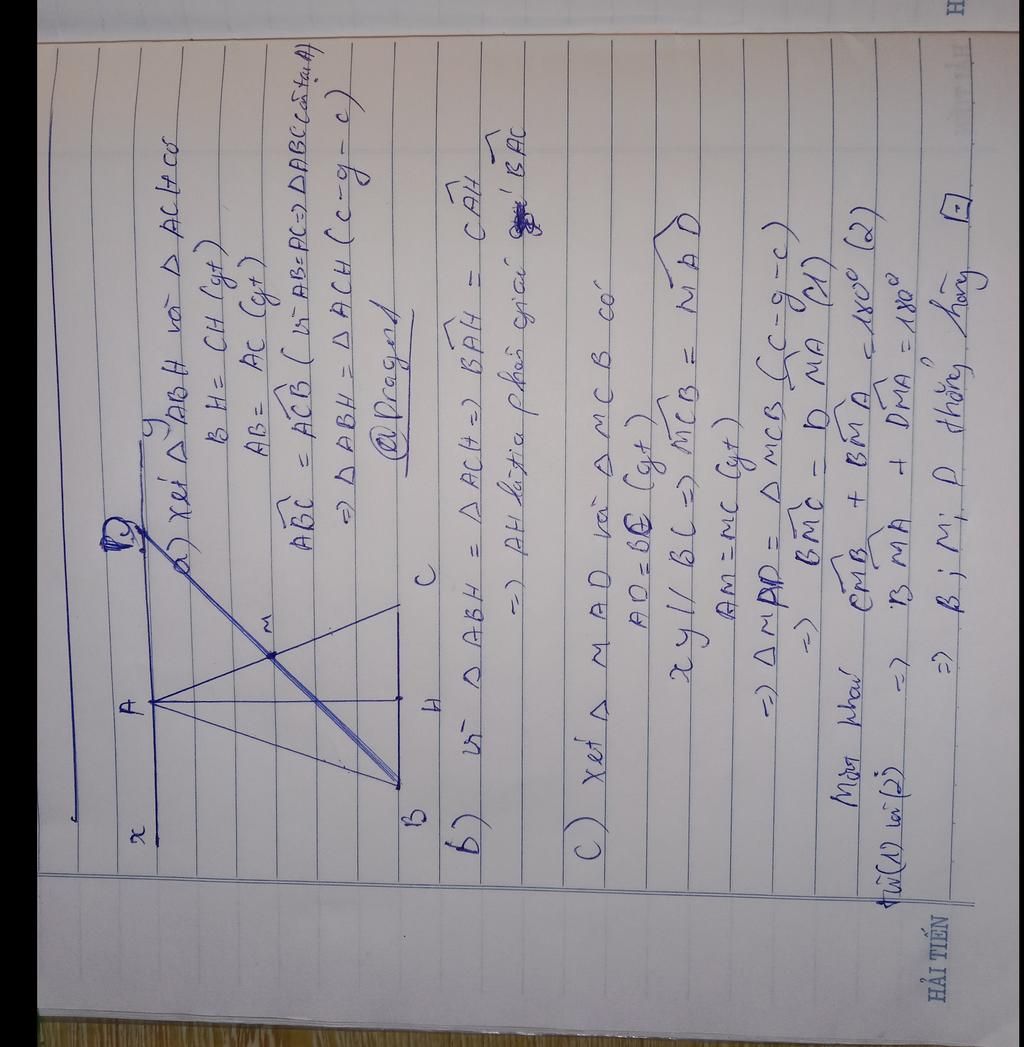 x A D y
a) xét Δ ABH và Δ ACH có
BH = CH (gt)
AB = AC (gt)
ABC = ACB (vì AB = AC => Δ ABC cân tại A)
=> Δ ABH = Δ ACH (c-g-c)
@Dragon1
M
B H C
b) vì Δ ABH = Δ ACH => BAH = CAH
=> AH là tia phân giác BAC
c) xét Δ MAD và Δ MCB có
AD = BC (gt)
xy // BC => MCB = MAD
AM = MC (gt)
=> Δ MAD = Δ MCB (c-g-c)
=> BMC = DMA (1)
Mặt khác CMB + BMA = 180° (2)
từ (1) và (2) => BMA + DMA = 180°
=> B; M; D thẳng hàng
HẢI TIẾN
H